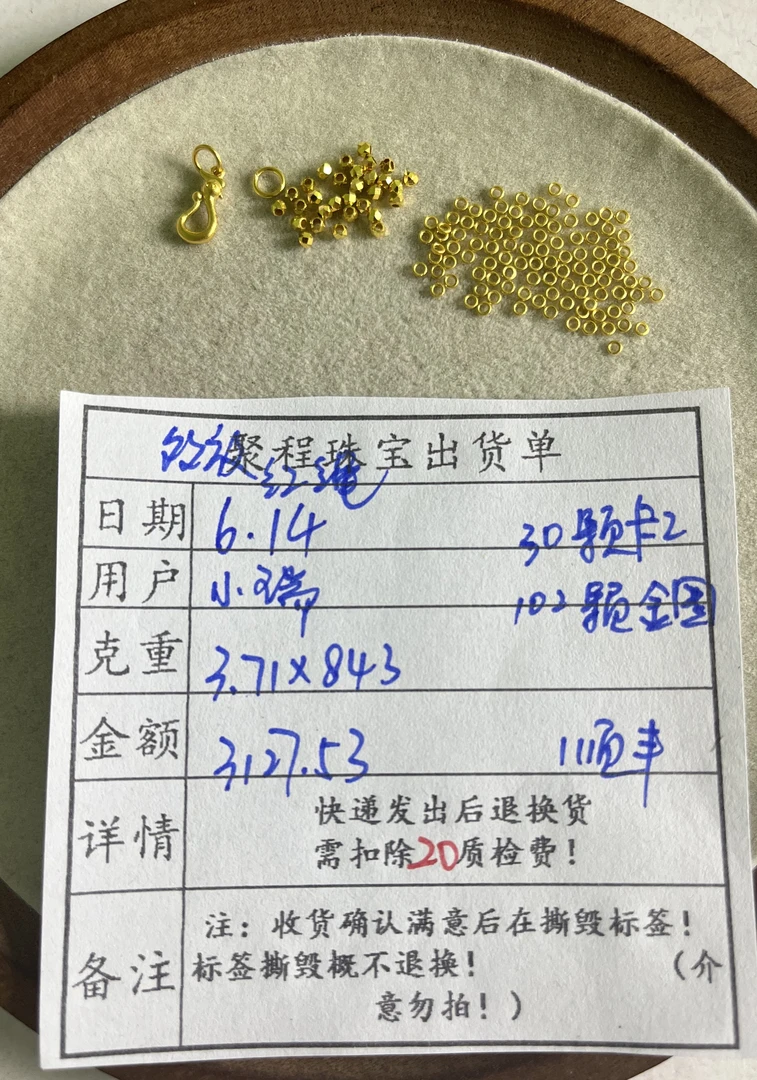 聚程珠宝出货单
红绳
日期 6.14 30颗卡2
用户 小瑞 102颗金圈
克重 3.71×843
金额 3127.53 顺丰
详情 快递发出后退换货
需扣除20质检费！
备注 注：收货确认满意后在撕毁标签！
标签撕毁概不退换！ （介
意勿拍！）